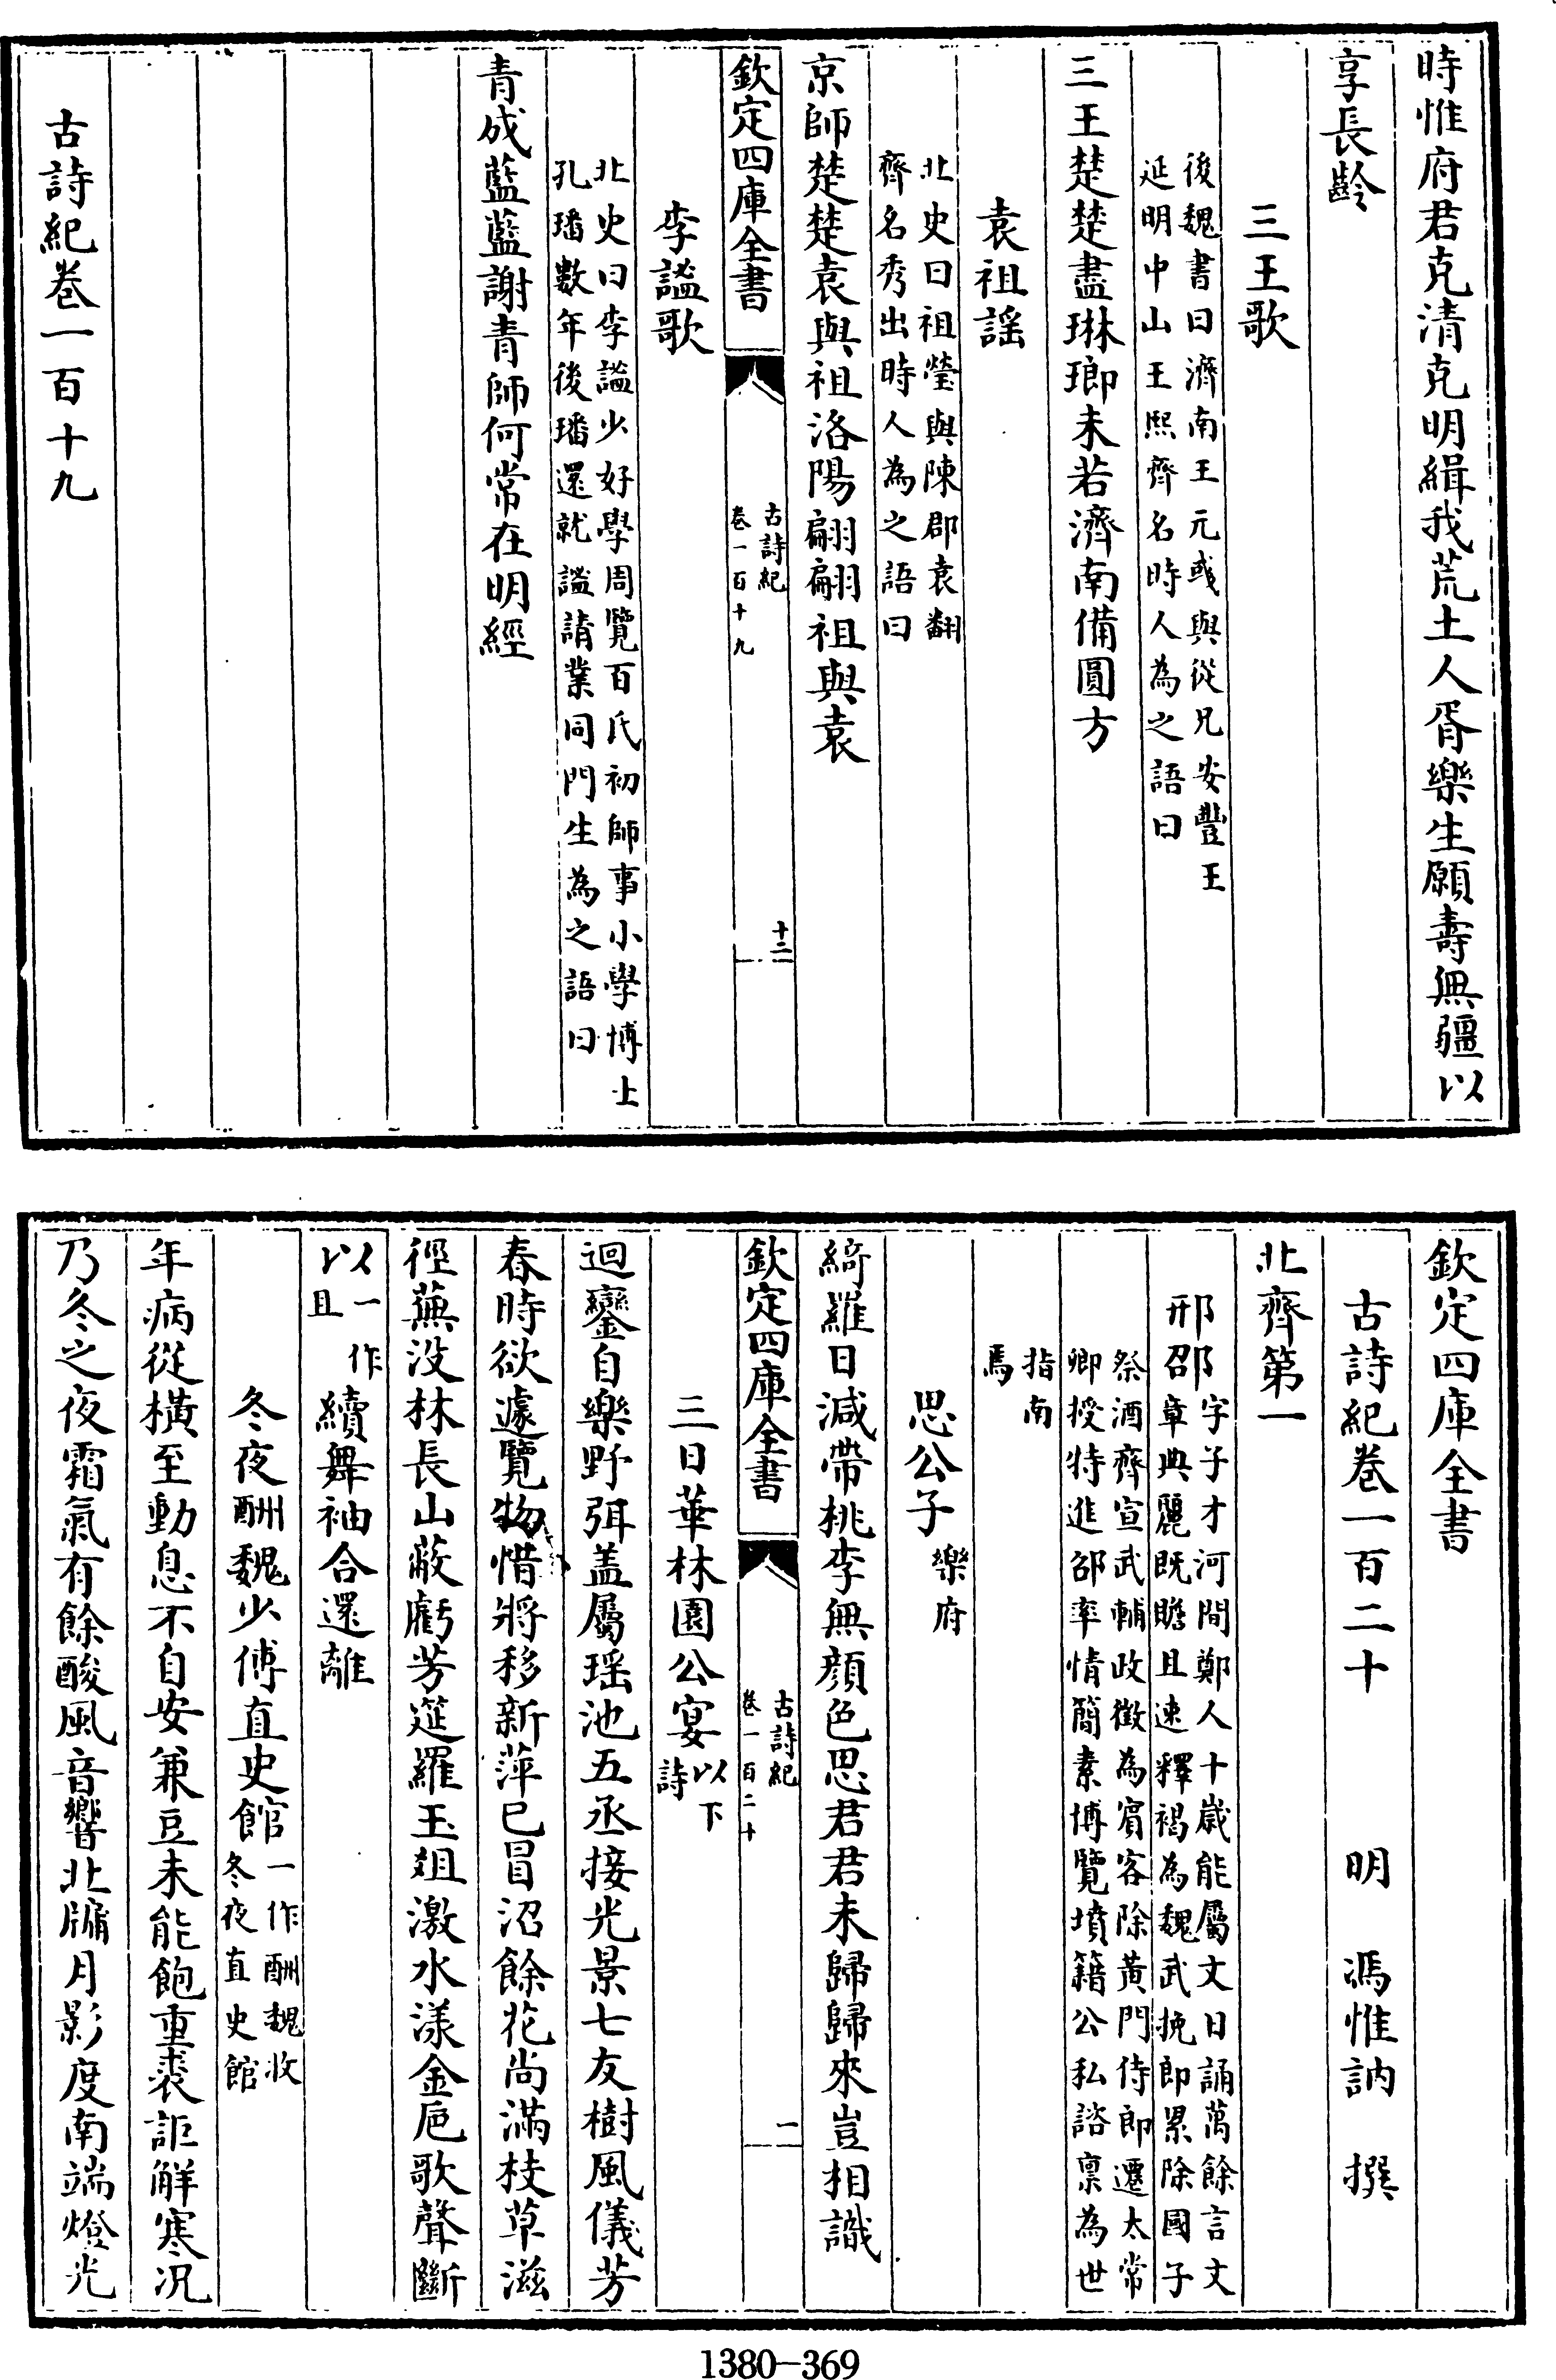 時惟府君克清克明緝我荒土人胥樂生願壽無疆以
享長齡
三王歌
後魏書曰濟南王元彧與從兄安豐王
延明中山王熙齊名時人為之語曰
三王楚楚盡琳瑯未若濟南備圓方
袁祖謠
北史曰祖瑩與陳郡袁翻
齊名秀出時人為之語曰
京師楚楚袁與祖洛陽翩翩祖與袁
欽定四庫全書
古詩紀
卷一百十九
十二
李謐歌
北史曰李謐少好學周覽百氏初師事小學博士
孔璠數年後璠還就謐請業同門生為之語曰
青成藍藍謝青師何常在明經
古詩紀卷一百十九
欽定四庫全書
古詩紀卷一百二十 明 馮惟訥 撰
北齊第一
邢邵
字子才河間鄭人十歲能屬文日誦萬餘言文
章典麗既贍且速釋褐為魏武挽郎累除國子
祭酒齊宣武輔政徵為賓客除黃門侍郎遷太常
卿授特進邵率情簡素博覽墳籍公私諮稟為世
指南
焉
思公子樂府
綺羅日減帶桃李無顔色思君君未歸歸來豈相識
欽定四庫全書
古詩紀
卷一百二十
一
三日華林園公宴以下詩
迴鑾自樂野弭盖屬瑶池五丞接光景七友樹風儀芳
春時欲遽覽物惜將移新萍已冒沼餘花尚滿枝草滋
徑蕪没林長山蔽虧芳筵羅玉俎激水漾金巵歌聲斷
以一作且續舞袖合還離
冬夜酬魏少傅直史館一作酬魏收冬夜直史館
年病從橫至動息不自安兼豆未能飽重裘詎解寒况
乃冬之夜霜氣有餘酸風音響北牖月影度南端燈光
1380-369